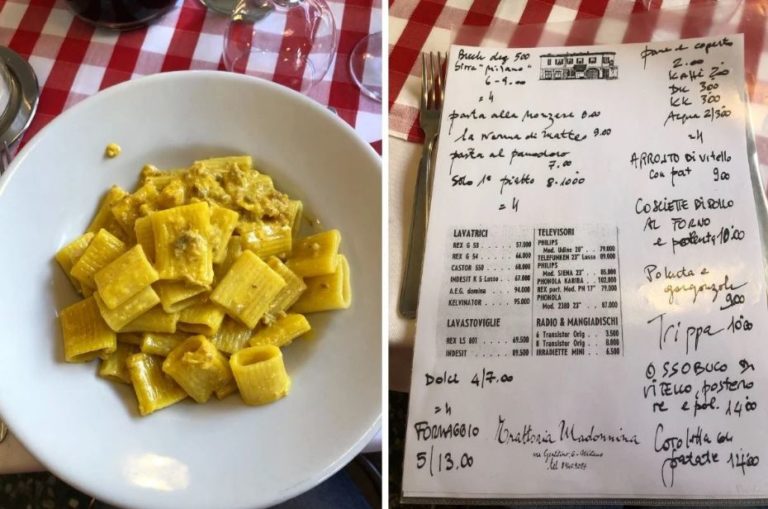 500
birra "milano"
6 - 9.00
= 4
pasta alla monzese 8.00
la nonna di matteo 9.00
pasta al pomodoro
7.00
Solo 1° piatto 8-10.00
= 4
LAVATRICI
REX G 53 . . . . 57.000
REX G 54 . . . . 66.000
CASTOR 550 . . . 68.000
INDESIT K 5 Lusso . 67.000
A.E.G. domina . . . 94.000
KELVINATOR . . . 95.000
LAVASTOVIGLIE
REX LS 801 . . . . 69.500
INDESIT . . . . 89.500
TELEVISORI
PHILIPS
Mod. Udine 20" . . 79.000
TELEFUNKEN 23" Lusso . 89.000
PHILIPS
Mod. SIENA 23" . . 85.000
PHONOLA KARIBA . . 102.000
REX port. Mod. PN 17" . 79.000
PHONOLA
Mod. 2380 23" . . 87.000
RADIO & MANGIADISCHI
6 Transistor Orig . . . 3.500
8 Transistor Orig . . . 8.000
IRRADIETTE MINI . . . 6.500
Dolci 4/7.00
= 4
FORMAGGIO
5/13.00
Trattoria Madonnina
via Gentilino, 6 - Milano
pane e coperto
2.00
Kaffè 2.00
DK 3.00
KK 3.00
Acqua 2/3.00
= 4
ARROSTO DI vitello
con pat 9.00
COSCIETTE DI POLLO
AL FORNO
e patate, 10.00
Polenta e
gorgonzola
9.00
Trippa 10.00
OSSOBUCO DI
VITELLO, pastene
re e pol. 14.00
Cotoletta con
patate 14.00